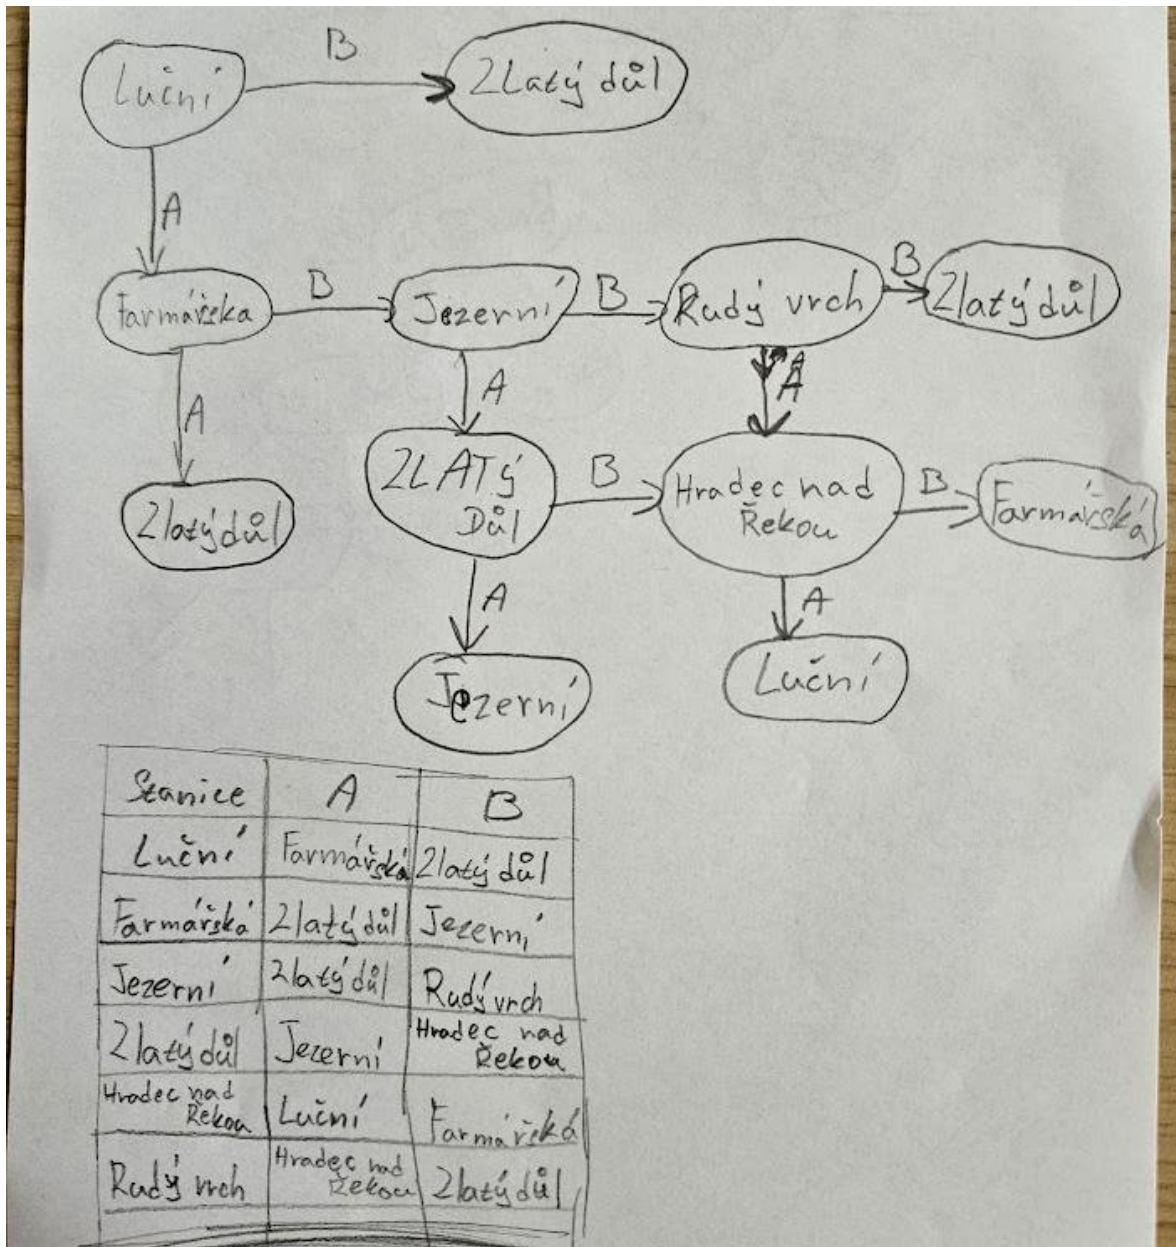 Luční
B
Zlatý důl
A
Farmářska
B
Jezerní
B
Rudý vrch
B
Zlatý důl
A
A
A
Zlatý důl
ZLATý
Důl
B
Hradec nad
Řekou
B
Farmářská
A
A
Jezerní
Luční
Stanice A B
Luční Farmářská Zlatý důl
Farmářská Zlatý důl Jezerní
Jezerní Zlatý důl Rudý vrch
Zlatý důl Jezerní Hradec nad
Řekou
Hradec nad
Řekou Luční Farmářská
Rudý vrch Hradec nad
Řekou Zlatý důl